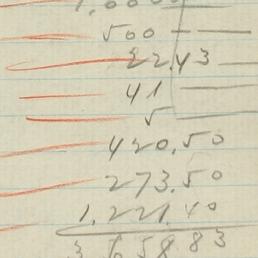 500
22.43
41
5
420.50
273.50
1,221.40
3658.83